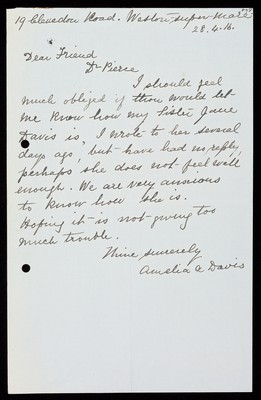 19 Clevedon Road. Weston super Mare
28.4.16.
Dear Friend
Dr Pierce
I should feel
much obliged if thou would let
me know how my Sister Jane
Davis is, I wrote to her several
days ago, but have had no reply,
perhaps she does not feel well
enough. We are very anxious
to know how she is.
Hoping it is not giving too
much trouble.
Thine sincerely
Amelia A Davis